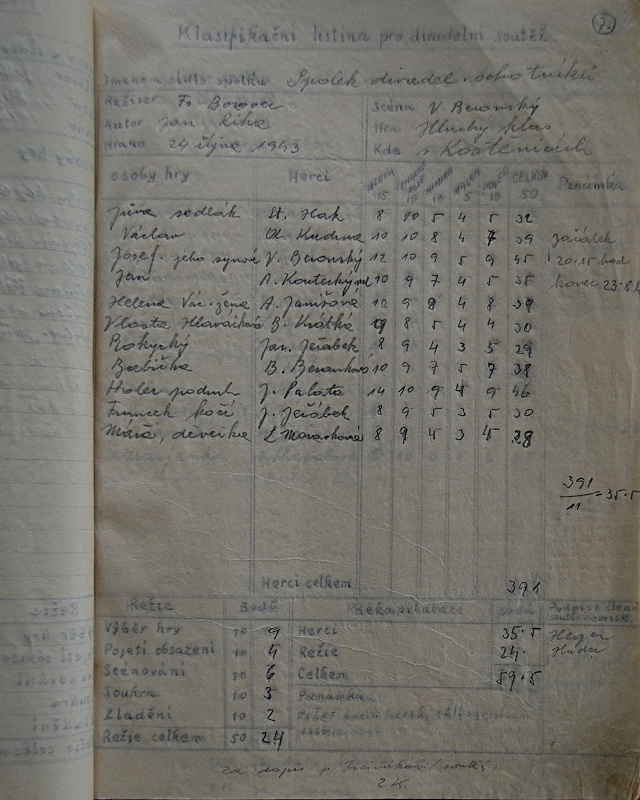 7.
Klasifikační listina pro divadelní soutěž
Jméno a sídlo spolku Spolek divadel. ochotníků
Režiser Fr. Scéna V. Beronský
Autor Jan Říha Hra Hluchý hlas
Hráno 24 října 1943 Kde v Kostenicích
osoby hry Herci 15 10 10 5 10 CELKEM 50 Poznámka
sedlák St. Hak 8 10 5 4 5 32
Václav Ol. Kudrna 10 10 8 4 7 39 začátek
Josef. jeho synové V. Beronský 12 10 9 5 9 45 20.15 hod
Jan A. Koutecký ml 10 9 7 4 5 35 konec 23.
Helena Vác. žena A. Janišová 10 9 8 4 8 39
Vlasta Hlaváčková B. Krátká 9 8 5 4 4 30
Rokycký Jar. Jeřábek 8 9 4 3 5 29
Babička B. Beronková 10 9 7 5 7 38
J. Palata 14 10 9 4 9 46
Francek kočí J. Jeřábek 8 9 5 3 5 30
děvečka L 8 9 4 3 4 28
391
11 = 35.5
Herci celkem 391
Režie Bodů Rekapitulace Bodů
Výběr hry 10 9 Herci 35.5
Pojetí obsazení 10 4 Režie 24.
Scénování 10 6 Celkem 59.5
Souhra 10 3 Poznámka
Zladění 10 2
Režie celkem 50 24